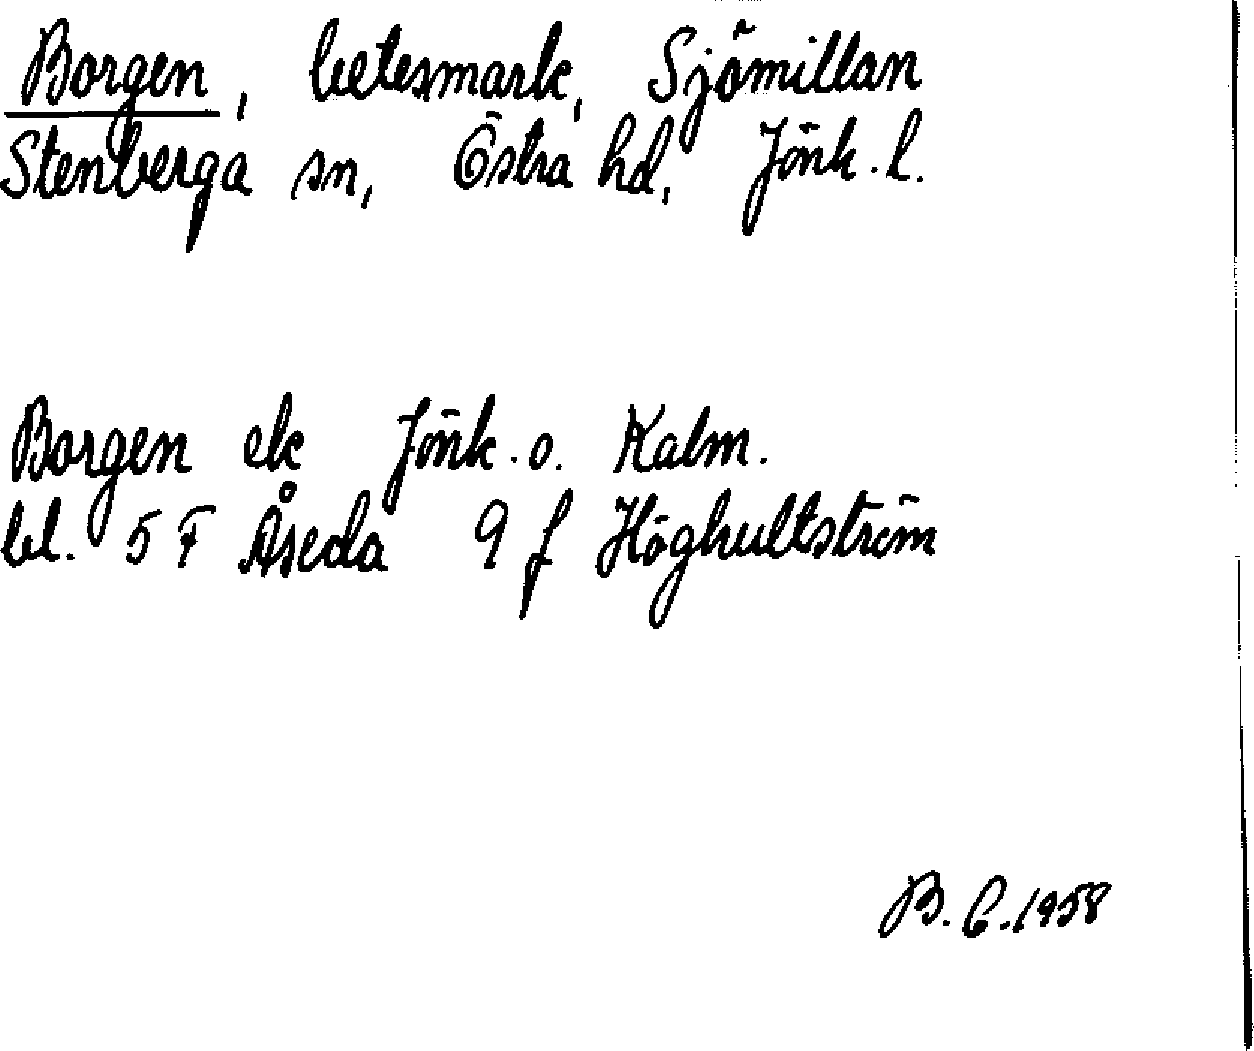 Borgen, betesmark, Sjömillan
Stenberga sn, Östra hd, Jönk. l.
Borgen ek Jönk. o. Kalm.
bl. 5 F Åseda 9 f Höghultström
B. E. 1958